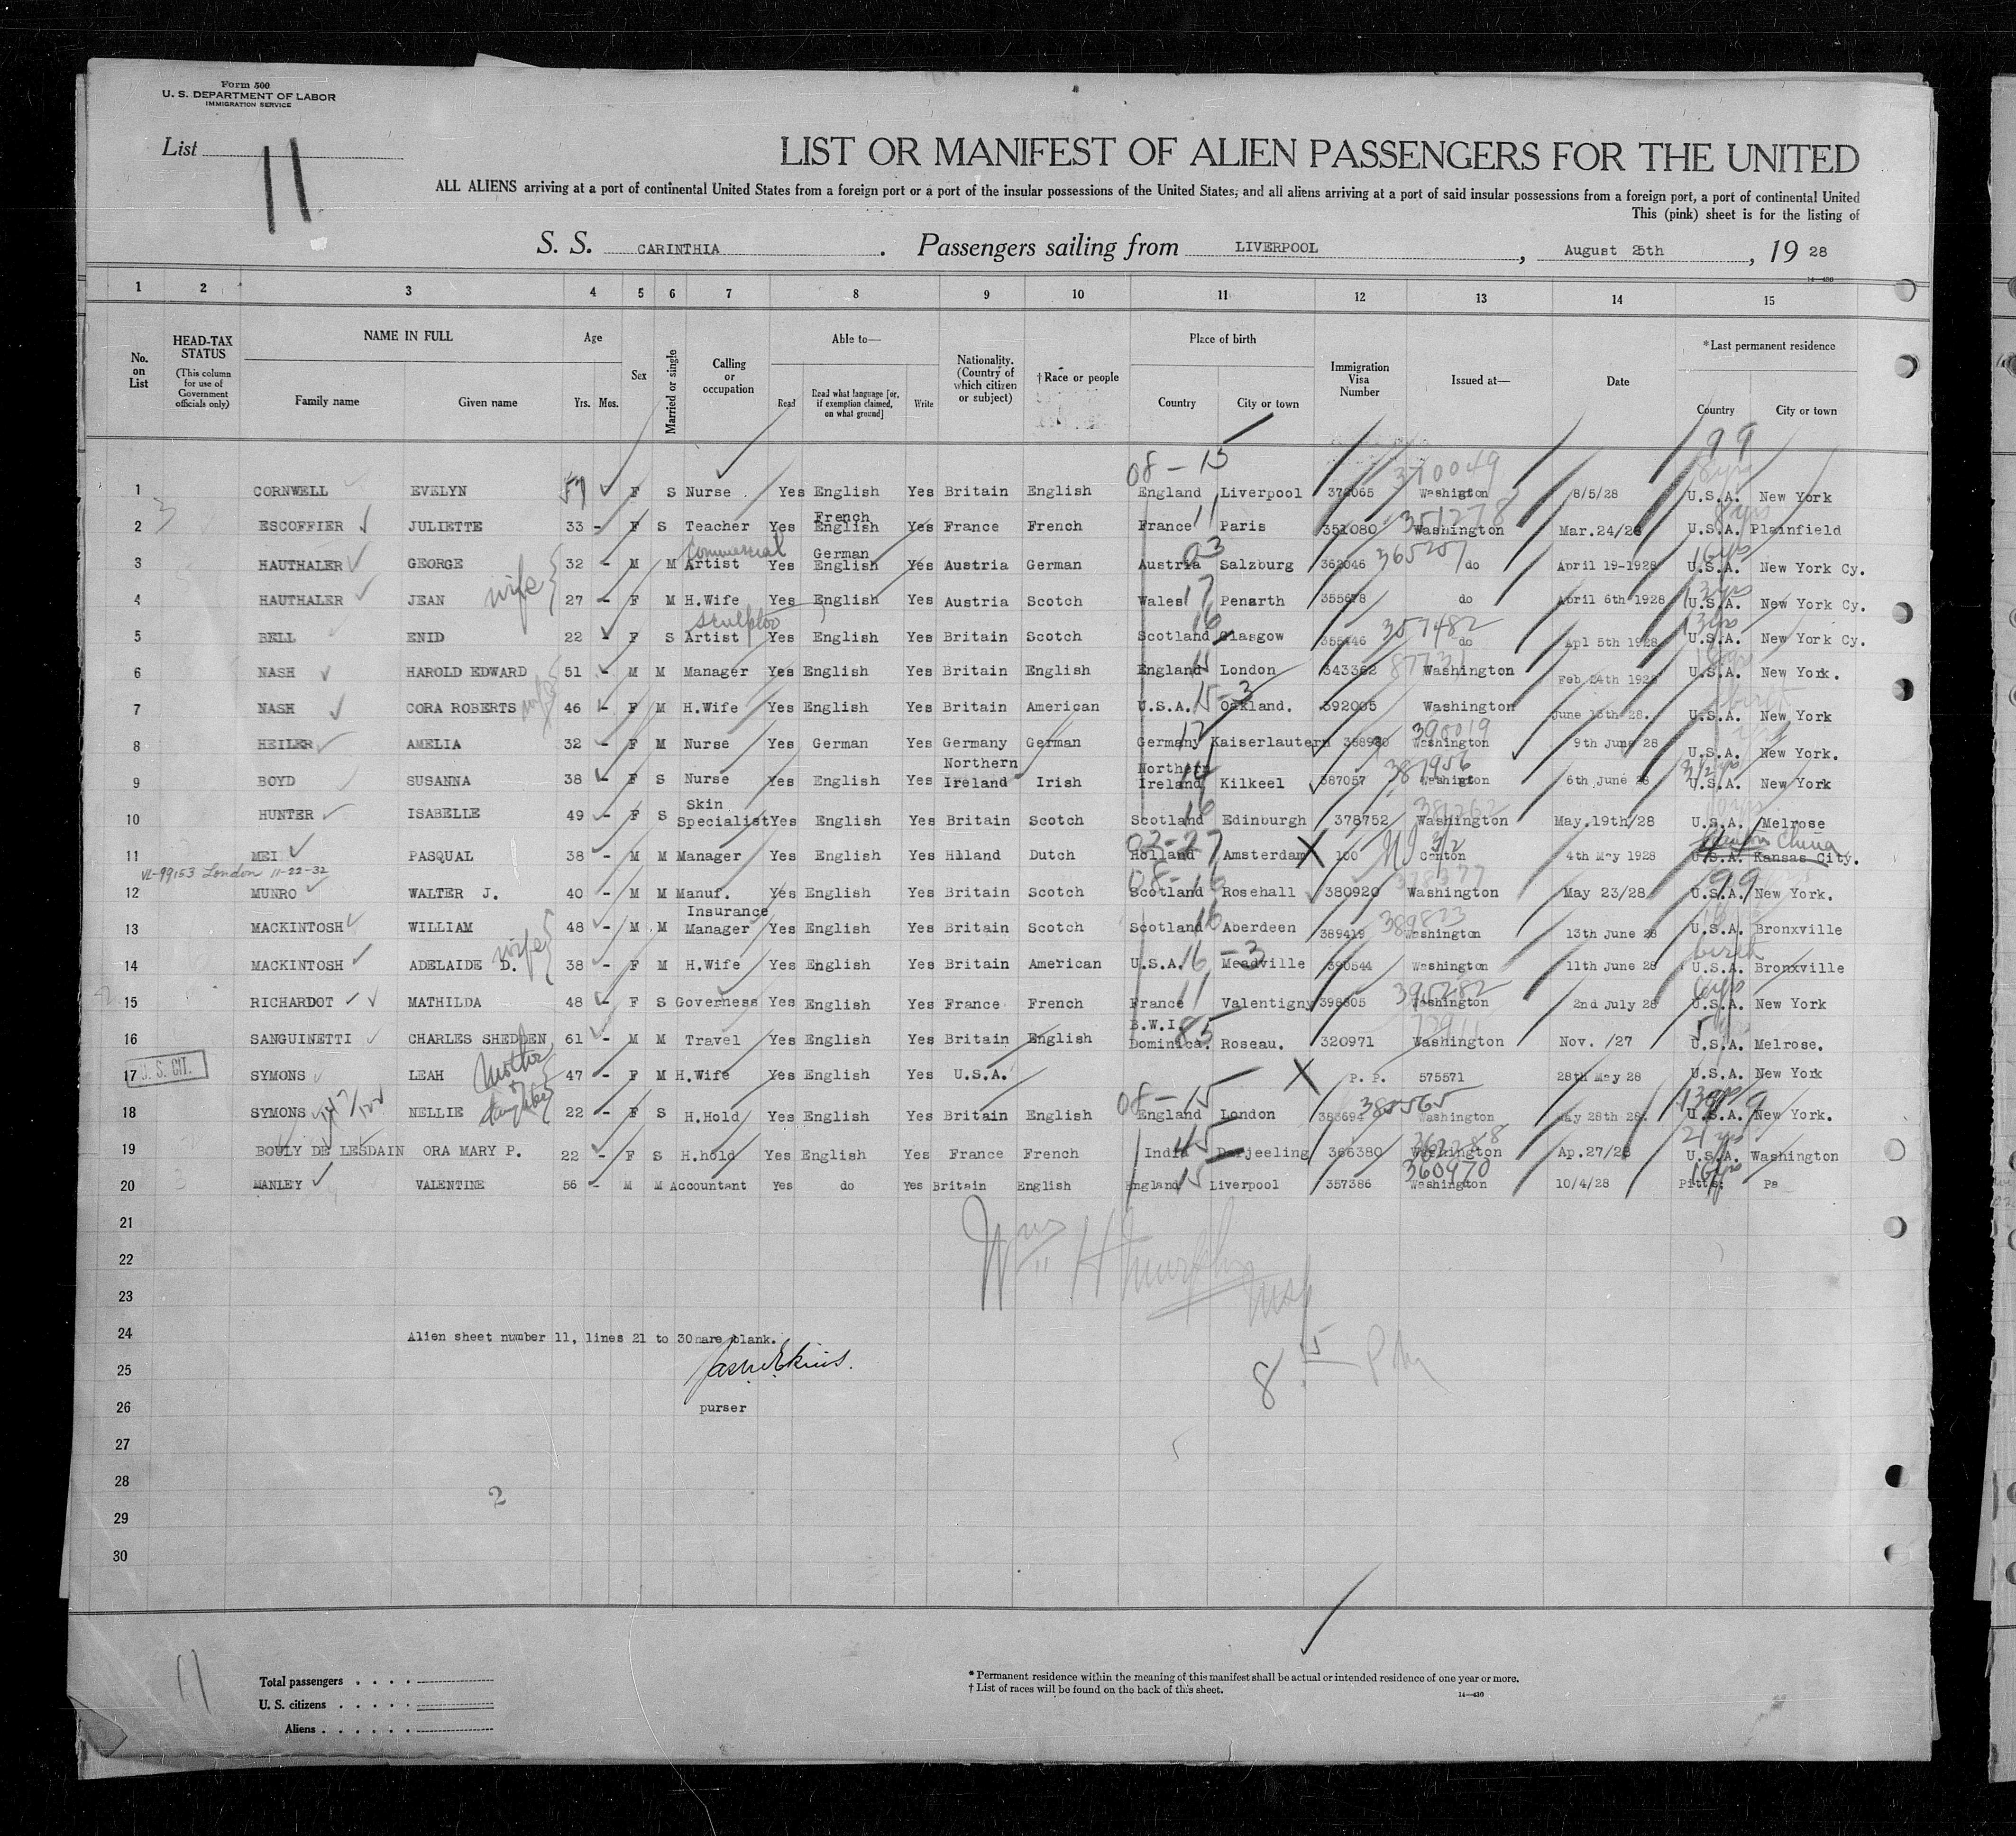 Form 500
U. S. DEPARTMENT OF LABOR
IMMIGRATION SERVICE
List 11
LIST OR MANIFEST OF ALIEN PASSENGERS FOR THE UNITED
ALL ALIENS arriving at a port of continental United States from a foreign port or a port of the insular possessions of the United States, and all aliens arriving at a port of said insular possessions from a foreign port, a port of continental United
This (pink) sheet is for the listing of
S. S. CARINTHIA. Passengers sailing from LIVERPOOL, August 25th, 19 28
14—430
1 2 3 4 5 6 7 8 9 10 11 12 13 14 15
No. on List
HEAD-TAX STATUS (This column for use of Government officials only)
NAME IN FULL
Family name Given name
Age
Yrs. Mos.
Sex
Married or single
Calling or occupation
Able to—
Read Read what language [or, if exemption claimed, on what ground] Write
Nationality. (Country of which citizen or subject)
†Race or people
Place of birth
Country City or town
Immigration Visa Number
Issued at—
Date
*Last permanent residence
Country City or town
08-15 370049 99
1 CORNWELL EVELYN 57 F S Nurse Yes English Yes Britain English England Liverpool 372065 Washington 8/5/28 U.S.A. New York
2 ESCOFFIER JULIETTE 33 - F S Teacher Yes French English Yes France French France 11 Paris 351080 351278 Washington Mar.24/28 U.S.A. Plainfield
3 HAUTHALER GEORGE 32 - M M Commercial Artist Yes German English Yes Austria German Austria 03 Salzburg 362046 365207 do April 19-1928 16yrs U.S.A. New York Cy.
4 HAUTHALER JEAN wife 27 - F M H.Wife Yes English Yes Austria Scotch Wales 17 Penarth 355678 do April 6th 1928 U.S.A. New York Cy.
5 BELL ENID 22 F S Sculptor Artist Yes English Yes Britain Scotch Scotland 16 Glasgow 355446 357482 do Apl 5th 1928 U.S.A. New York Cy.
6 NASH HAROLD EDWARD 51 - M M Manager Yes English Yes Britain English England London 343362 Washington Feb 24th 1928 U.S.A. New York.
7 NASH CORA ROBERTS wife 46 - F M H.Wife Yes English Yes Britain American U.S.A. 15-3 Oakland. 392005 Washington June 15th 28. birth U.S.A. New York
8 HEILER AMELIA 32 - F M Nurse Yes German Yes Germany German Germany 12 Kaiserlautern 388980 390019 Washington 9th June 28 U.S.A. New York.
9 BOYD SUSANNA 38 - F S Nurse Yes English Yes Northern Ireland Irish Northern Ireland 14 Kilkeel 387057 387956 Washington 6th June 28 3½ yrs U.S.A. New York
10 HUNTER ISABELLE 49 - F S Skin Specialist Yes English Yes Britain Scotch Scotland 16 Edinburgh 378752 381262 Washington May.19th/28 U.S.A. Melrose
11 MEI PASQUAL 38 - M M Manager Yes English Yes Hlland Dutch 02-27 Holland Amsterdam X 100 Canton 4th May 1928 China U.S.A. Kansas City.
VL-99153 London 11-22-32
12 MUNRO WALTER J. 40 - M M Manuf. Yes English Yes Britain Scotch 08-16 Scotland Rosehall 380920 378377 Washington May 23/28 99 U.S.A. New York.
13 MACKINTOSH WILLIAM 48 - M M Insurance Manager Yes English Yes Britain Scotch Scotland 16 Aberdeen 389419 389823 Washington 13th June 28 U.S.A. Bronxville
14 MACKINTOSH ADELAIDE D. wife 38 - F M H.Wife Yes English Yes Britain American U.S.A. 16-3 Meadville 390544 Washington 11th June 28 birth U.S.A. Bronxville
15 RICHARDOT MATHILDA 48 - F S Governess Yes English Yes France French France 11 Valentigny 398605 395282 Washington 2nd July 28 6yrs U.S.A. New York
16 SANGUINETTI CHARLES SHEDDEN 61 - M M Travel Yes English Yes Britain English B.W.I. Dominica. 85 Roseau. 320971 Washington Nov. /27 U.S.A. Melrose.
17 U. S. CIT. SYMONS LEAH Mother & daughter 47 - F M H.Wife Yes English Yes U.S.A. X P. P. 575571 28th May 28 U.S.A. New York
18 SYMONS NELLIE 22 - F S H.Hold Yes English Yes Britain English 08-15 England London 383694 380565 Washington May 28th 28. 13yrs U.S.A. New York.
19 BOULY DE LESDAIN ORA MARY P. 22 - F S H.hold Yes English Yes France French India 45 Darjeeling 366380 362288 Washington Ap.27/28 2½ yrs U.S.A. Washington
20 MANLEY VALENTINE 56 - M M Accountant Yes do Yes Britain English England 15 Liverpool 357386 360970 Washington 10/4/28 16yrs Pitts: Pa
21
22 Wm H Murphy Insp
23
24 Alien sheet number 11, lines 21 to 30 are blank.
8 15 PM
25
26 purser
27
28
29 2
30
11
Total passengers
U. S. citizens
Aliens
* Permanent residence within the meaning of this manifest shall be actual or intended residence of one year or more.
† List of races will be found on the back of this sheet.
14—430